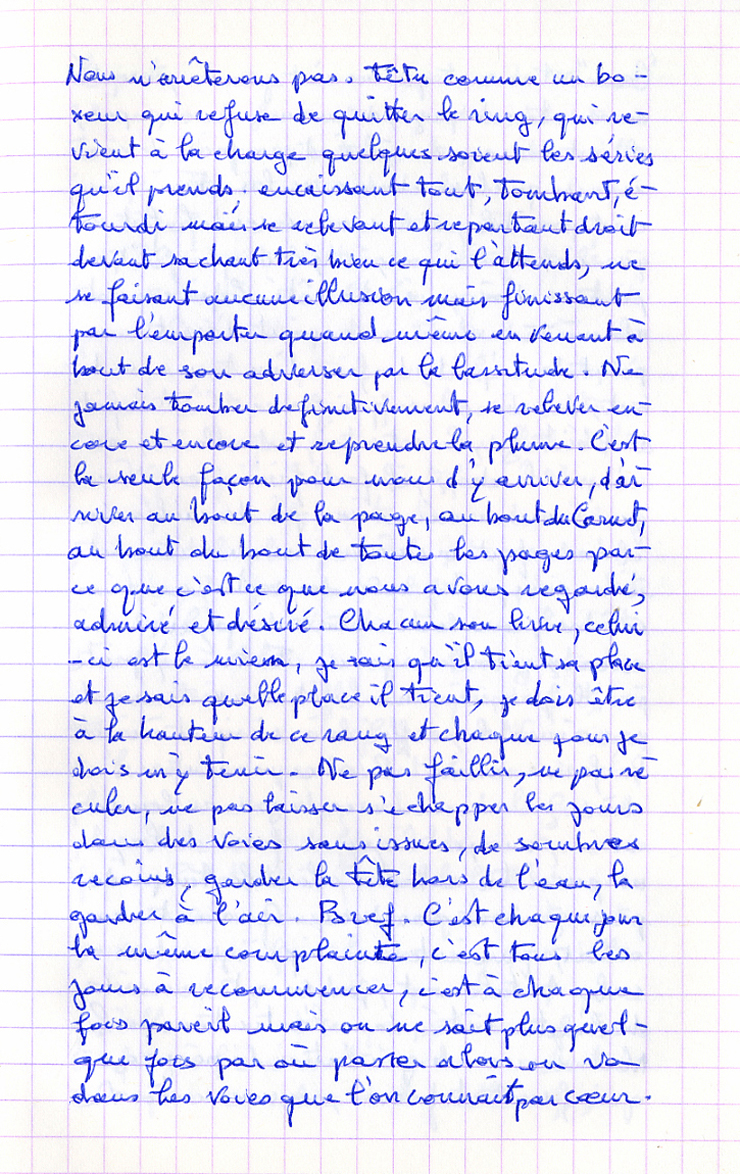 Nous n'arrêterons pas. Têtu comme un bo-
xeur qui refuse de quitter le ring, qui re-
vient à la charge quelques soient les séries
qu'il prends, encaissant tout, tombant, é-
tourdi mais se relevant et repartant droit
devant sachant très bien ce qui l'attends, ne
se faisant aucune illusion mais finissant
par l'emporter quand même en venant à
bout de son adverser par la lassitude. Ne
jamais tomber definitivement, se relever en-
core et encore et reprendre la plume. C'est
la seule façon pour nous d'y arriver, d'ar-
river au bout de la page, au bout du Carnet,
au bout du bout de toutes les pages par-
ce que c'est ce que nous avons regardé,
admiré et désiré. Chacun son livre, celui
-ci est le mien, je sais qu'il tient sa place
et je sais quelle place il tient, je dois être
à la hauteur de ce rang et chaque jour je
dois m'y tenir. Ne pas faillir, ne pas re
culer, ne pas laisser s'echapper les jours
dans des voies sans issues, de sombres
recoins, garder la tête hors de l'eau, la
garder à l'air. Bref. C'est chaque jour
la même complainte, c'est tous les
jours à recommencer, c'est à chaque
fois pareil mais on ne sait plus quel-
que fois par où passer alors on va
dans les voies que l'on connait par cœur.